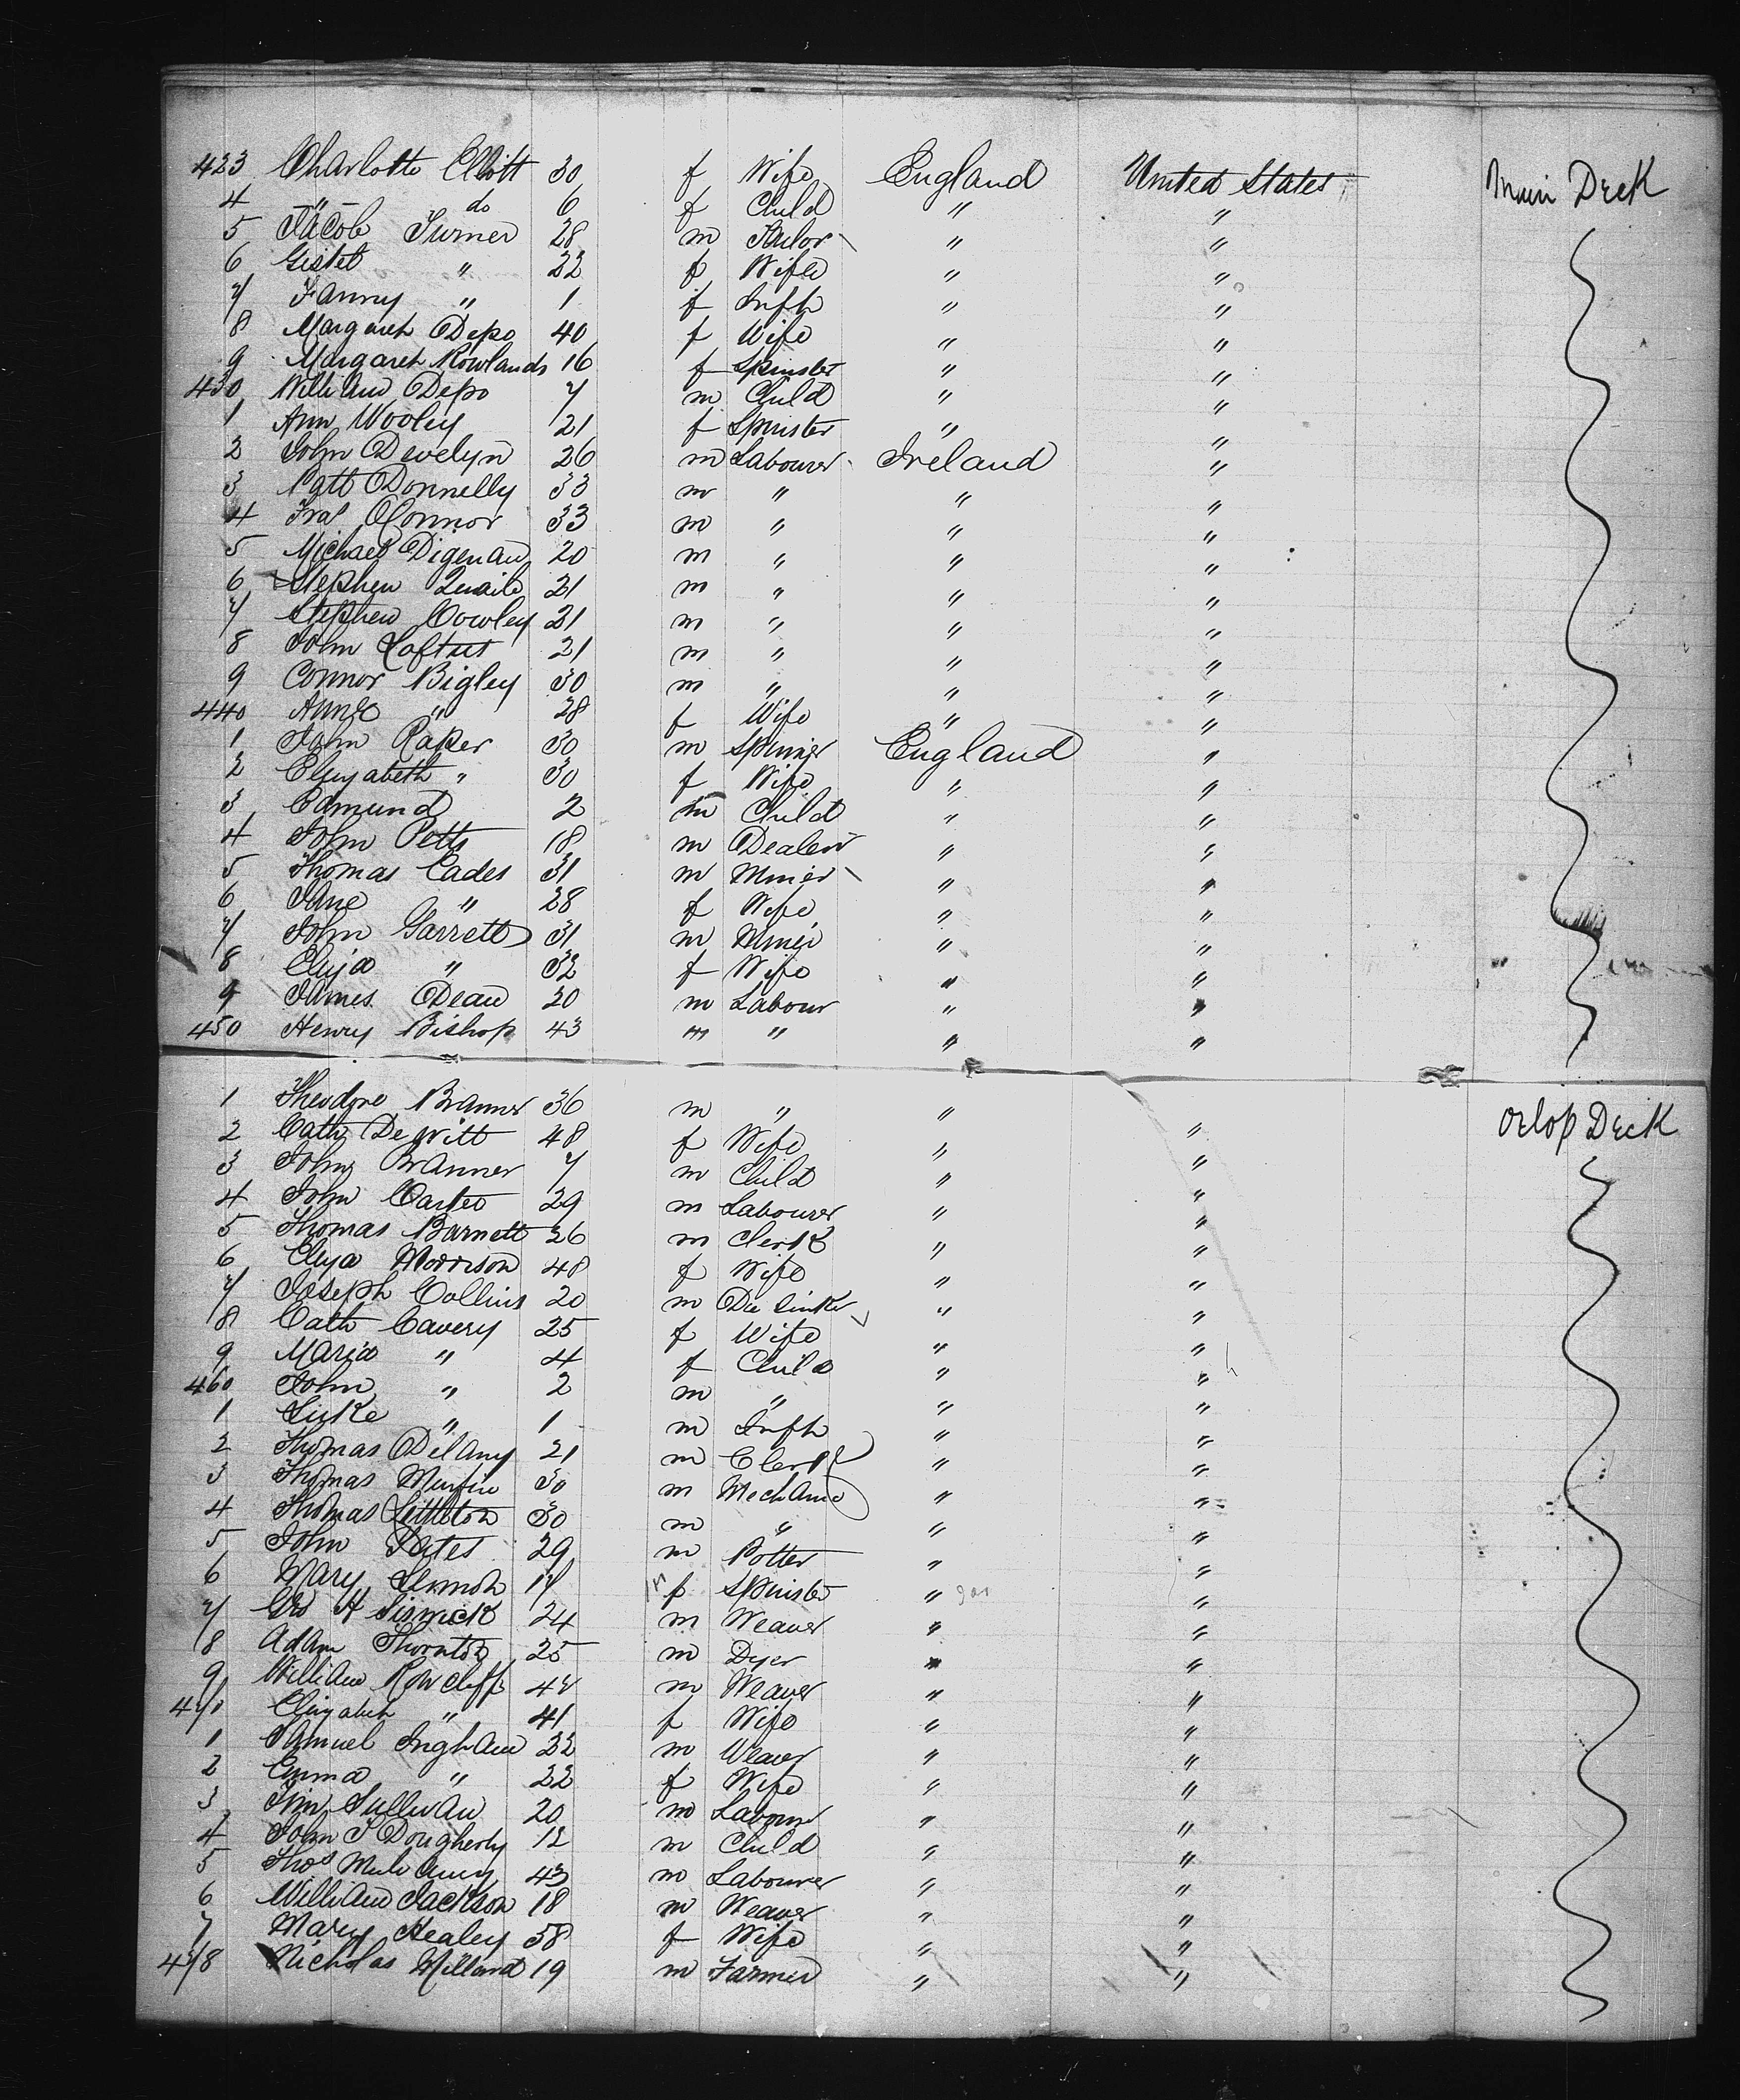 423 Charlotte Elliott 30 f Wife England United States Main Deck
4 " do 6 f Child " "
5 Jacob Turner 28 m Tailor " "
6 " 22 f Wife " "
7 Fanny " 1 f Infts " "
8 Margaret Depo 40 f Wife " "
9 Margaret Rowlands 16 f Spinster " "
430 William Depo 7 m Child " "
1 Ann Wooley 21 f Spinster " "
2 John Develyn 26 m Labourer Ireland "
3 Patt Donnelly 33 m " " "
4 Fras OConnor 33 m " " "
5 Michael Digenan 20 m " " "
6 Stephen Quaile 21 m " " "
7 Stephen Cowley 21 m " " "
8 John Loftus 21 m " " "
9 Connor Bigley 30 m " " "
440 Anne " 28 f Wife " "
1 John Raper 30 m Spinner England "
2 Elizabeth " 30 f Wife " "
3 Edmund 2 m Child " "
4 John Potts 18 m Dealer " "
5 Thomas Eades 31 m Miner " "
6 Jane " 28 f Wife " "
7 John Garrett 31 m Miner " "
8 Eliza " 32 f Wife " "
9 James Dean 20 m Labour " "
450 Henry Bishop 43 m " " "
1 Theodore Branner 36 m " " " Orlop Deck
2 Cath DeWitt 48 f Wife " "
3 John Branner 7 m Child " "
4 John Carter 29 m Labourer " "
5 Thomas Barnett 26 m Clerk " "
6 Eliza Morrison 48 f Wife " "
7 Joseph Collins 20 m Die Sinker " "
8 Cath Cavery 25 f Wife " "
9 Maria " 4 f Child " "
460 John " 2 m " " "
1 Luke " 1 m Infts " "
2 Thomas Delany 21 m Clerk " "
3 Thomas Murfin 30 m Mechanic " "
4 Thomas Littleton 30 m " " "
5 John Bates 29 m Potter " "
6 Mary f Spinster " "
7 Geo H Siswick 24 m Weaver " "
8 Adam Thornton 25 m Dyer " "
9 William Rowcliff m Weaver " "
470 Elizabeth " 41 f Wife " "
1 Samuel Ingham 22 m Weaver " "
2 Emma " 22 f Wife " "
3 Tim Sullivan 20 m Labour " "
4 John J Dougherty 12 m Child " "
5 Thos 43 m Labourer " "
6 William Jackson 18 m Weaver " "
7 Mary Healey 58 f Wife " "
478 Nicholas Millard 19 m Farmer " "